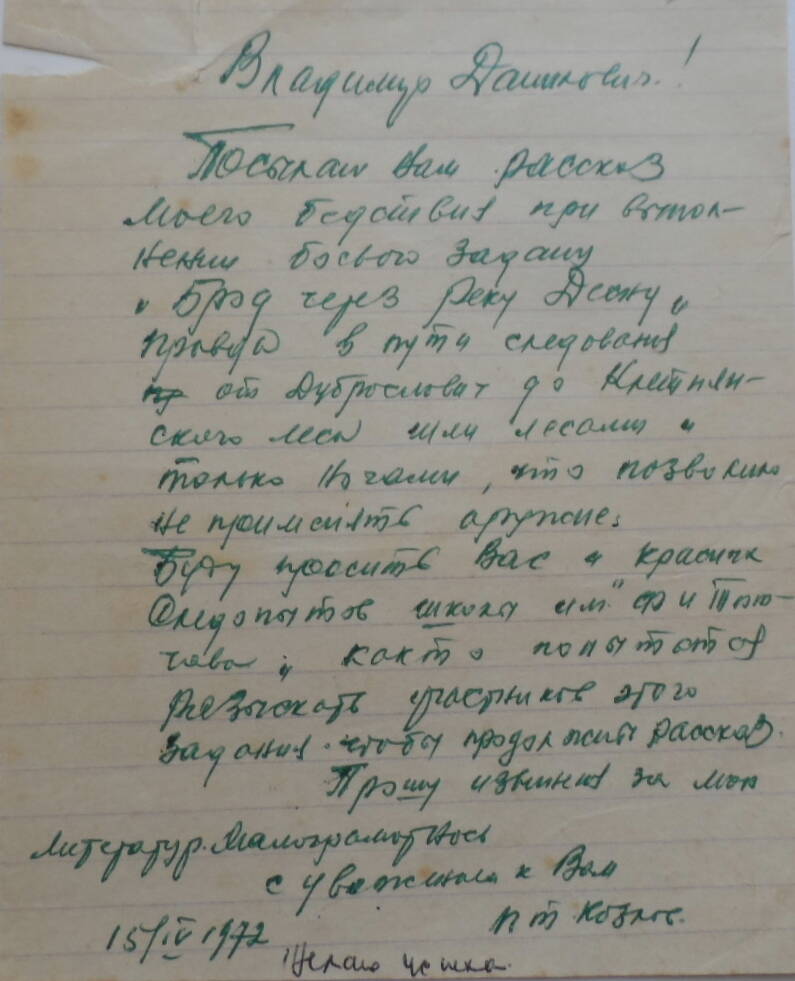 Владимир Данилович!
Посылаю Вам рассказ
моего бедствия при выпол-
нении боевого задану
„ Брод через реку Десну „
правда в пути следования
от Дуброслович до Клетнян-
ского леса шли лесами и
только ночами, что позволило
не применять оружие.
Буду просить Вас и красных
Следопытов школы им." Ф И Тют-
чева „ както попытатся
разыскать участников этого
задания. чтобы продолжить рассказ.
Прошу извиния за мою
Литератур. Малограмотнось
с уважением к Вам
П Т Козлов.
15/IV 1972
Желаю успеха.